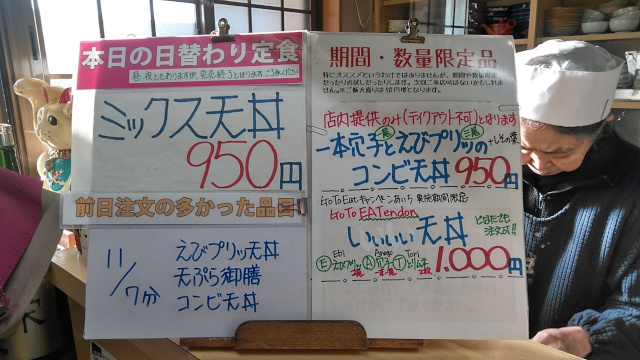 本日の日替わり定食
昼・夜ともありますが、売切れ終了となります。ご了承ください
ミックス天丼
950円
前日注文の多かった品目
11/7分
えびプリッ天丼
天ぷら御膳
コンビ天丼
期間・数量限定品
特にオススメというわけではありませんが、期間や数量限定
だったりお試しだったりします。次回ご来店時はないかもしれま
せん。※ご飯大盛りは50円増となります。
店内提供のみ(テイクアウト不可)となります
一本穴子とえびプリッの
+しその葉
コンビ天丼 950円
GoToEatキャンペーンあいち
GoTo EATendon
いいいい天丼
どなたでも
注文可!!
Ebi Anago Tori
Ⓔえびプリッ Ⓐ穴子 Ⓣとりムネ
1.000円